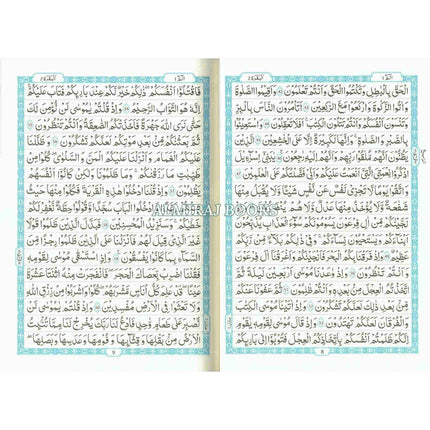 البقرة ٢ الٓمّٓ ١
الْحَقَّ بِالْبَاطِلِ وَتَكْتُمُوا الْحَقَّ وَاَنْتُمْ تَعْلَمُوْنَ وَاَقِيْمُوا الصَّلٰوةَ
وَاٰتُوا الزَّكٰوةَ وَارْكَعُوْا مَعَ الرّٰكِعِيْنَ اَتَاْمُرُوْنَ النَّاسَ بِالْبِرِّ
وَتَنْسَوْنَ اَنْفُسَكُمْ وَاَنْتُمْ تَتْلُوْنَ الْكِتٰبَ اَفَلَا تَعْقِلُوْنَ وَاسْتَعِيْنُوْا
بِالصَّبْرِ وَالصَّلٰوةِ وَاِنَّهَا لَكَبِيْرَةٌ اِلَّا عَلَى الْخٰشِعِيْنَ الَّذِيْنَ
يَظُنُّوْنَ اَنَّهُمْ مُّلٰقُوْا رَبِّهِمْ وَاَنَّهُمْ اِلَيْهِ رٰجِعُوْنَ يٰبَنِيْ اِسْرَآءِيْلَ
اذْكُرُوْا نِعْمَتِيَ الَّتِيْ اَنْعَمْتُ عَلَيْكُمْ وَاَنِّيْ فَضَّلْتُكُمْ عَلَى الْعٰلَمِيْنَ
وَاتَّقُوْا يَوْمًا لَّا تَجْزِيْ نَفْسٌ عَنْ نَّفْسٍ شَيْئًا وَّلَا يُقْبَلُ مِنْهَا
شَفَاعَةٌ وَّلَا يُؤْخَذُ مِنْهَا عَدْلٌ وَّلَا هُمْ يُنْصَرُوْنَ وَاِذْ
نَجَّيْنٰكُمْ مِّنْ اٰلِ فِرْعَوْنَ يَسُوْمُوْنَكُمْ سُوْٓءَ الْعَذَابِ يُذَبِّحُوْنَ
اَبْنَآءَكُمْ وَيَسْتَحْيُوْنَ نِسَآءَكُمْ وَفِيْ ذٰلِكُمْ بَلَآءٌ مِّنْ رَّبِّكُمْ
عَظِيْمٌ وَاِذْ فَرَقْنَا بِكُمُ الْبَحْرَ فَاَنْجَيْنٰكُمْ وَاَغْرَقْنَآ اٰلَ فِرْعَوْنَ
وَاَنْتُمْ تَنْظُرُوْنَ وَاِذْ وٰعَدْنَا مُوْسٰٓى اَرْبَعِيْنَ لَيْلَةً ثُمَّ
اتَّخَذْتُمُ الْعِجْلَ مِنْ بَعْدِهٖ وَاَنْتُمْ ظٰلِمُوْنَ ثُمَّ عَفَوْنَا عَنْكُمْ
مِّنْ بَعْدِ ذٰلِكَ لَعَلَّكُمْ تَشْكُرُوْنَ وَاِذْ اٰتَيْنَا مُوْسَى الْكِتٰبَ
وَالْفُرْقَانَ لَعَلَّكُمْ تَهْتَدُوْنَ وَاِذْ قَالَ مُوْسٰى لِقَوْمِهٖ يٰقَوْمِ
اِنَّكُمْ ظَلَمْتُمْ اَنْفُسَكُمْ بِاتِّخَاذِكُمُ الْعِجْلَ فَتُوْبُوْٓا اِلٰى بَارِئِكُمْ
8
البقرة ٢ الٓمّٓ ١
فَاقْتُلُوْٓا اَنْفُسَكُمْ ذٰلِكُمْ خَيْرٌ لَّكُمْ عِنْدَ بَارِئِكُمْ فَتَابَ عَلَيْكُمْ
اِنَّهٗ هُوَ التَّوَّابُ الرَّحِيْمُ وَاِذْ قُلْتُمْ يٰمُوْسٰى لَنْ نُّؤْمِنَ لَكَ
حَتّٰى نَرَى اللّٰهَ جَهْرَةً فَاَخَذَتْكُمُ الصّٰعِقَةُ وَاَنْتُمْ تَنْظُرُوْنَ
ثُمَّ بَعَثْنٰكُمْ مِّنْ بَعْدِ مَوْتِكُمْ لَعَلَّكُمْ تَشْكُرُوْنَ وَظَلَّلْنَا
عَلَيْكُمُ الْغَمَامَ وَاَنْزَلْنَا عَلَيْكُمُ الْمَنَّ وَالسَّلْوٰى كُلُوْا مِنْ
طَيِّبٰتِ مَا رَزَقْنٰكُمْ وَمَا ظَلَمُوْنَا وَلٰكِنْ كَانُوْٓا اَنْفُسَهُمْ
يَظْلِمُوْنَ وَاِذْ قُلْنَا ادْخُلُوْا هٰذِهِ الْقَرْيَةَ فَكُلُوْا مِنْهَا حَيْثُ
شِئْتُمْ رَغَدًا وَّادْخُلُوا الْبَابَ سُجَّدًا وَّقُوْلُوْا حِطَّةٌ نَّغْفِرْ لَكُمْ
خَطٰيٰكُمْ وَسَنَزِيْدُ الْمُحْسِنِيْنَ فَبَدَّلَ الَّذِيْنَ ظَلَمُوْا
قَوْلًا غَيْرَ الَّذِيْ قِيْلَ لَهُمْ فَاَنْزَلْنَا عَلَى الَّذِيْنَ ظَلَمُوْا رِجْزًا مِّنَ
السَّمَآءِ بِمَا كَانُوْا يَفْسُقُوْنَ وَاِذِ اسْتَسْقٰى مُوْسٰى لِقَوْمِهٖ
فَقُلْنَا اضْرِبْ بِّعَصَاكَ الْحَجَرَ فَانْفَجَرَتْ مِنْهُ اثْنَتَا عَشْرَةَ
عَيْنًا قَدْ عَلِمَ كُلُّ اُنَاسٍ مَّشْرَبَهُمْ كُلُوْا وَاشْرَبُوْا مِنْ رِّزْقِ اللّٰهِ
وَلَا تَعْثَوْا فِي الْاَرْضِ مُفْسِدِيْنَ وَاِذْ قُلْتُمْ يٰمُوْسٰى لَنْ
نَّصْبِرَ عَلٰى طَعَامٍ وَّاحِدٍ فَادْعُ لَنَا رَبَّكَ يُخْرِجْ لَنَا مِمَّا تُنْبِتُ
الْاَرْضُ مِنْ بَقْلِهَا وَقِثَّآئِهَا وَفُوْمِهَا وَعَدَسِهَا وَبَصَلِهَا
9
ALMIRAJ BOOKS